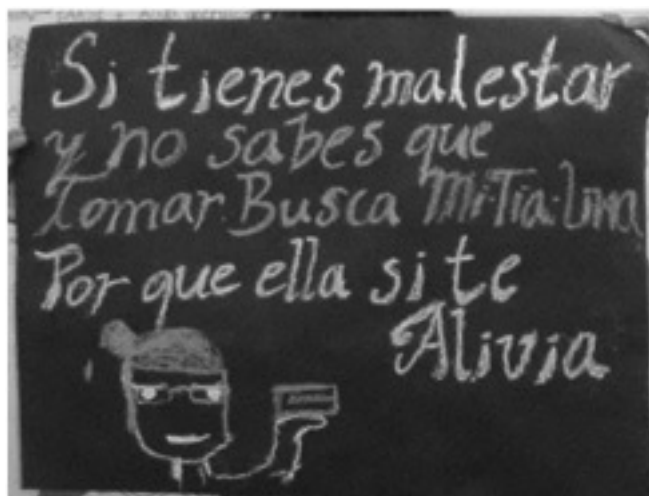 Si tienes malestar
y no sabes que
Tomar. Busca Mi-Tia-
Por que ella si te
Alivia